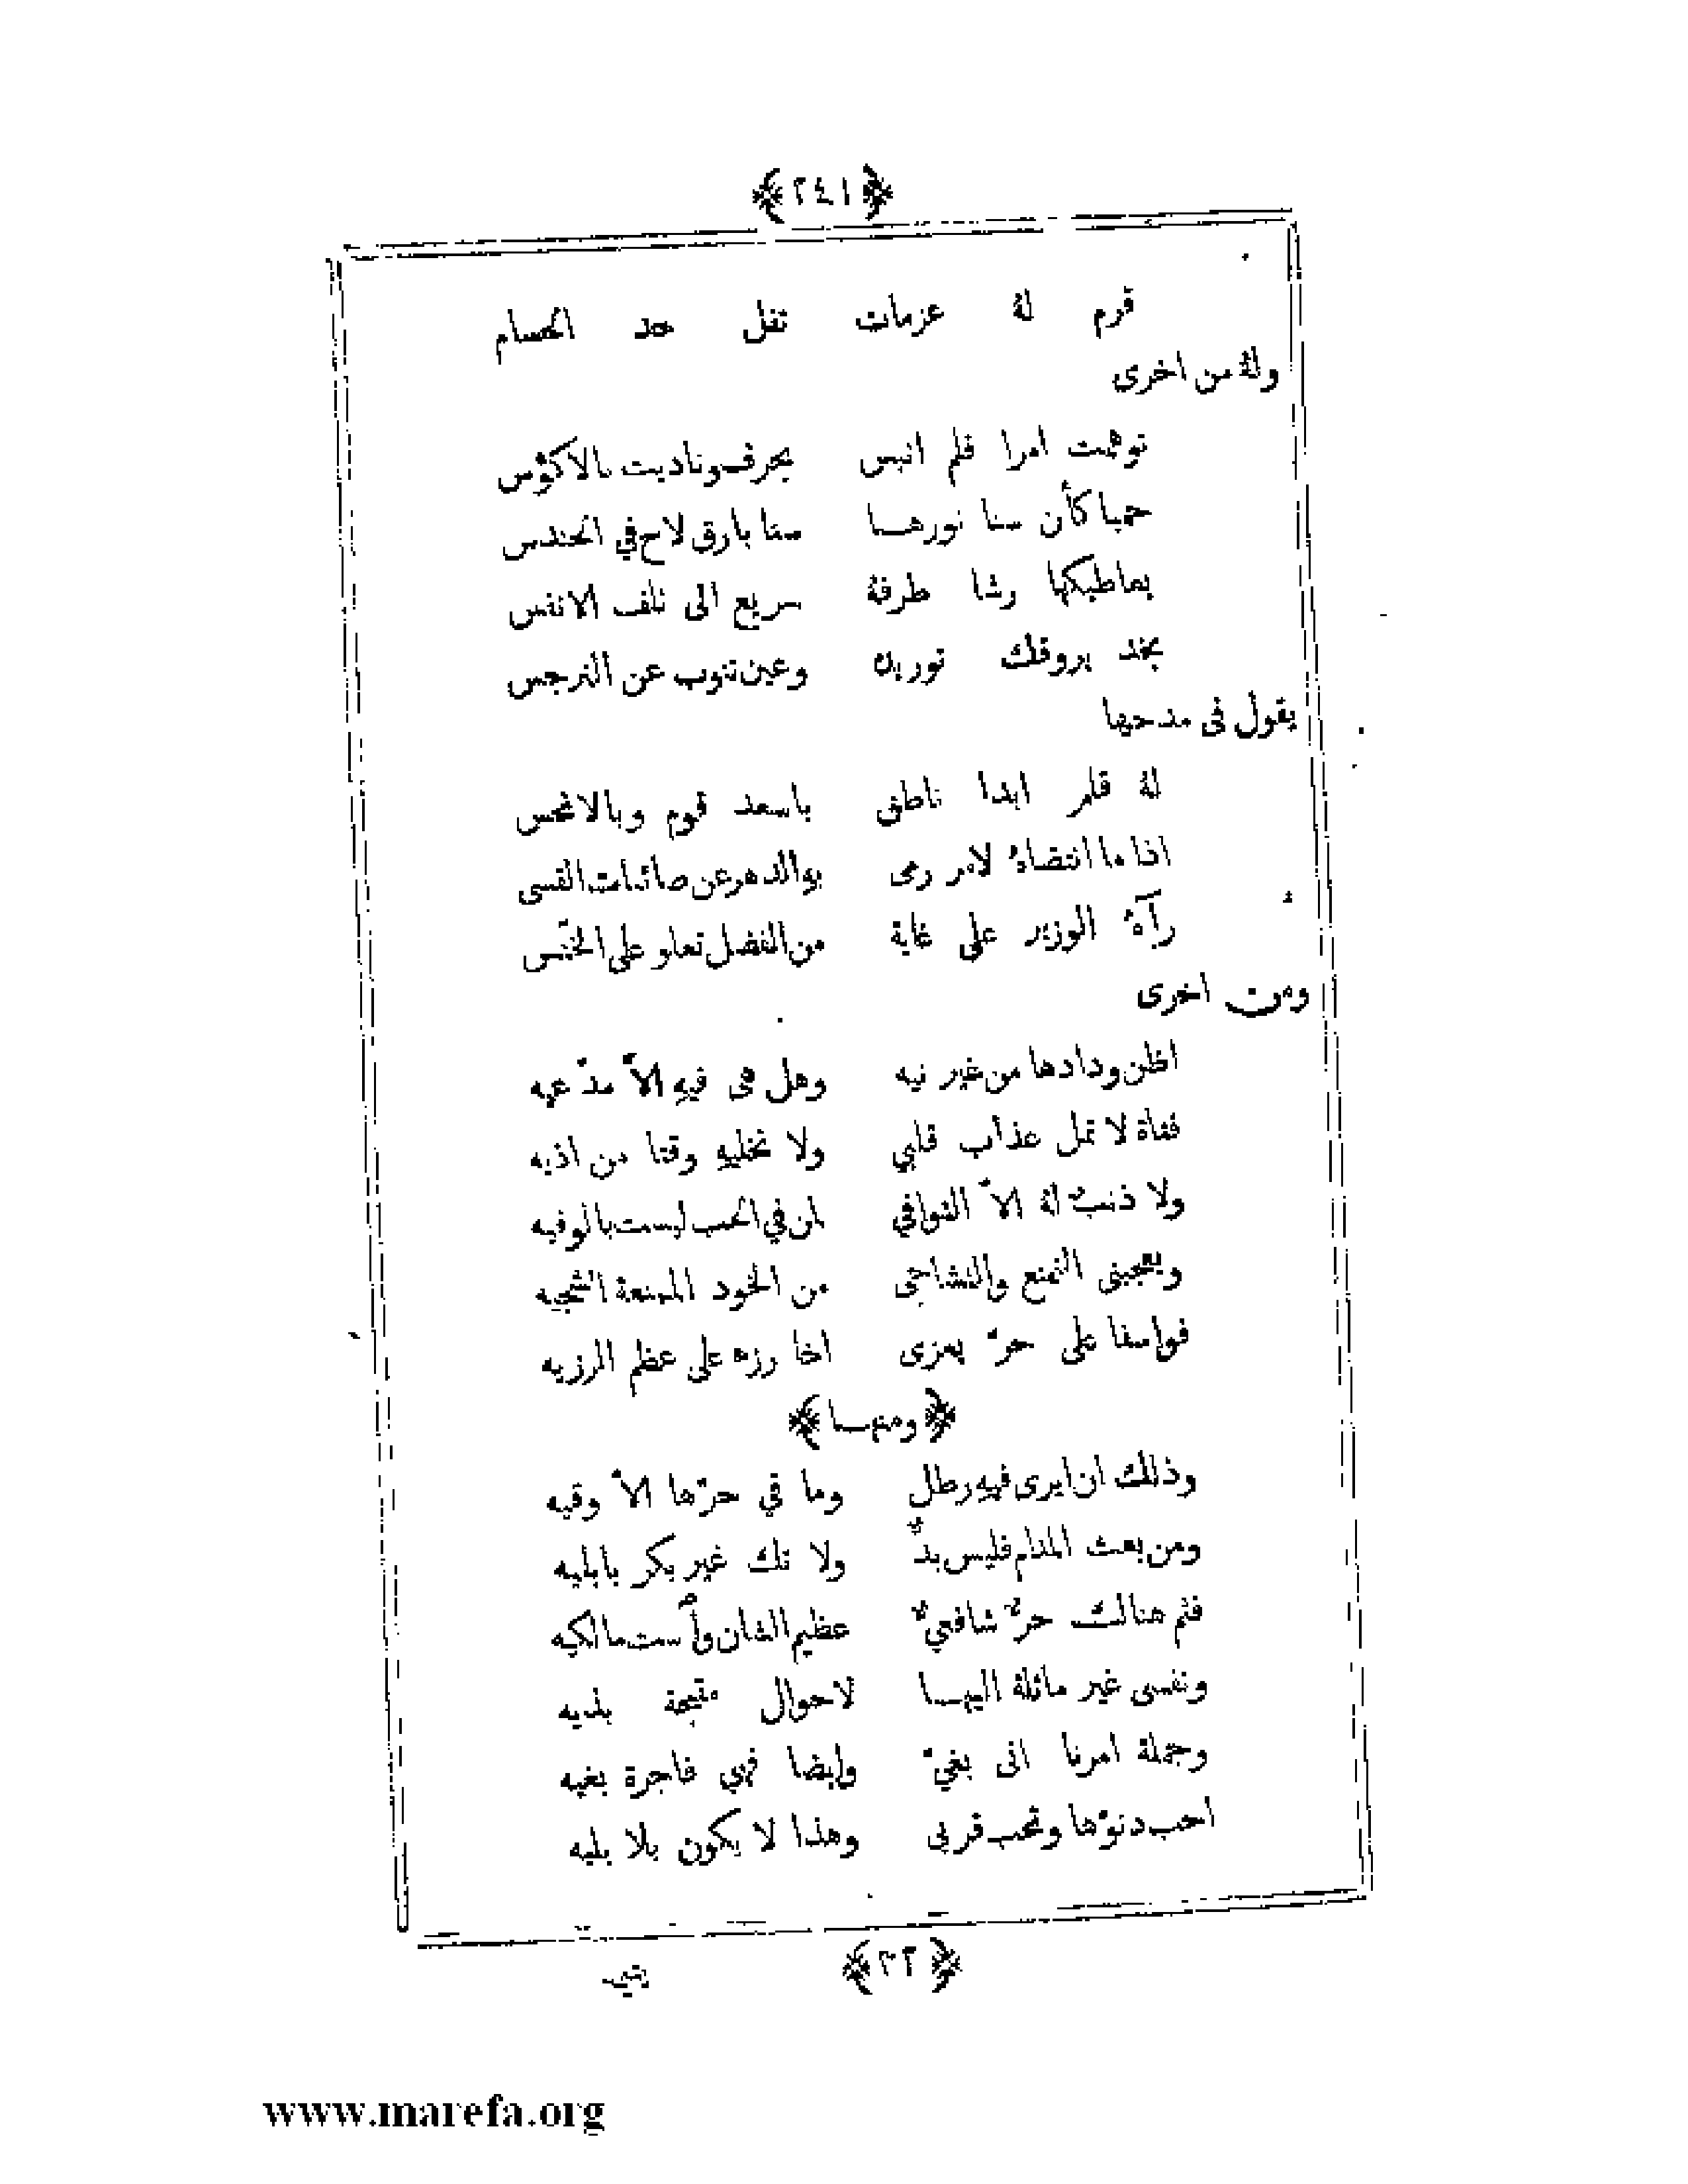 ﴿٢٤١﴾
قرم له عزمات تفل حد الحسام
وله من اخرى
توهمت امرا فلم انبس بحرف وناديت بالاكؤس
حميا كأن سنا نورهـا سنا بارق لاح في الحندس
يعاطيكها رشا طرفه سريع الى تلف الانفس
بخد يروقك توريده وعين تنوب عن النرجس
يقول فى مدحها
له قلم ابدا ناطق باسعد قوم وبالانحس
اذا ما انتضاه لامر رمى به الدهر عن صائبات القسى
رآه الوزير على غاية من الفضل تعلو على الخنّس
ومن اخرى
اظن ودادها من غير نيه وهل هى فيه الاّ مدّعيه
فتاة لا تمل عذاب قلبي ولا تخليه وقتا من اذيه
ولا ذنب له الاّ التوافي لمن في الحب ليست بالوفيه
ويعجبنى التمنع والتشاجى من الخود الممنعة الشجيه
فوا سفا على حرّ يعزى اخا رزء على عظم الرزيه
﴿ومنهـا﴾
وذلك ان ايرى فيه رطل وما في حرّها الاّ وقيه
ومن بعث المدام فليس بدّ ولا تك غير بكر بابليه
فثم هنالك حرّ شافعيّ عظيم الشان ولست مالكيه
ونفسى غير مائلة اليهـا لاحوال مقبحة بذيه
وجملة امرنا انى بغيّ وايضا فهي فاجرة بغيه
احب دنوّها وتحب قربى وهذا لا يكون بلا بليه
﴿٣٢﴾
www.marefa.org